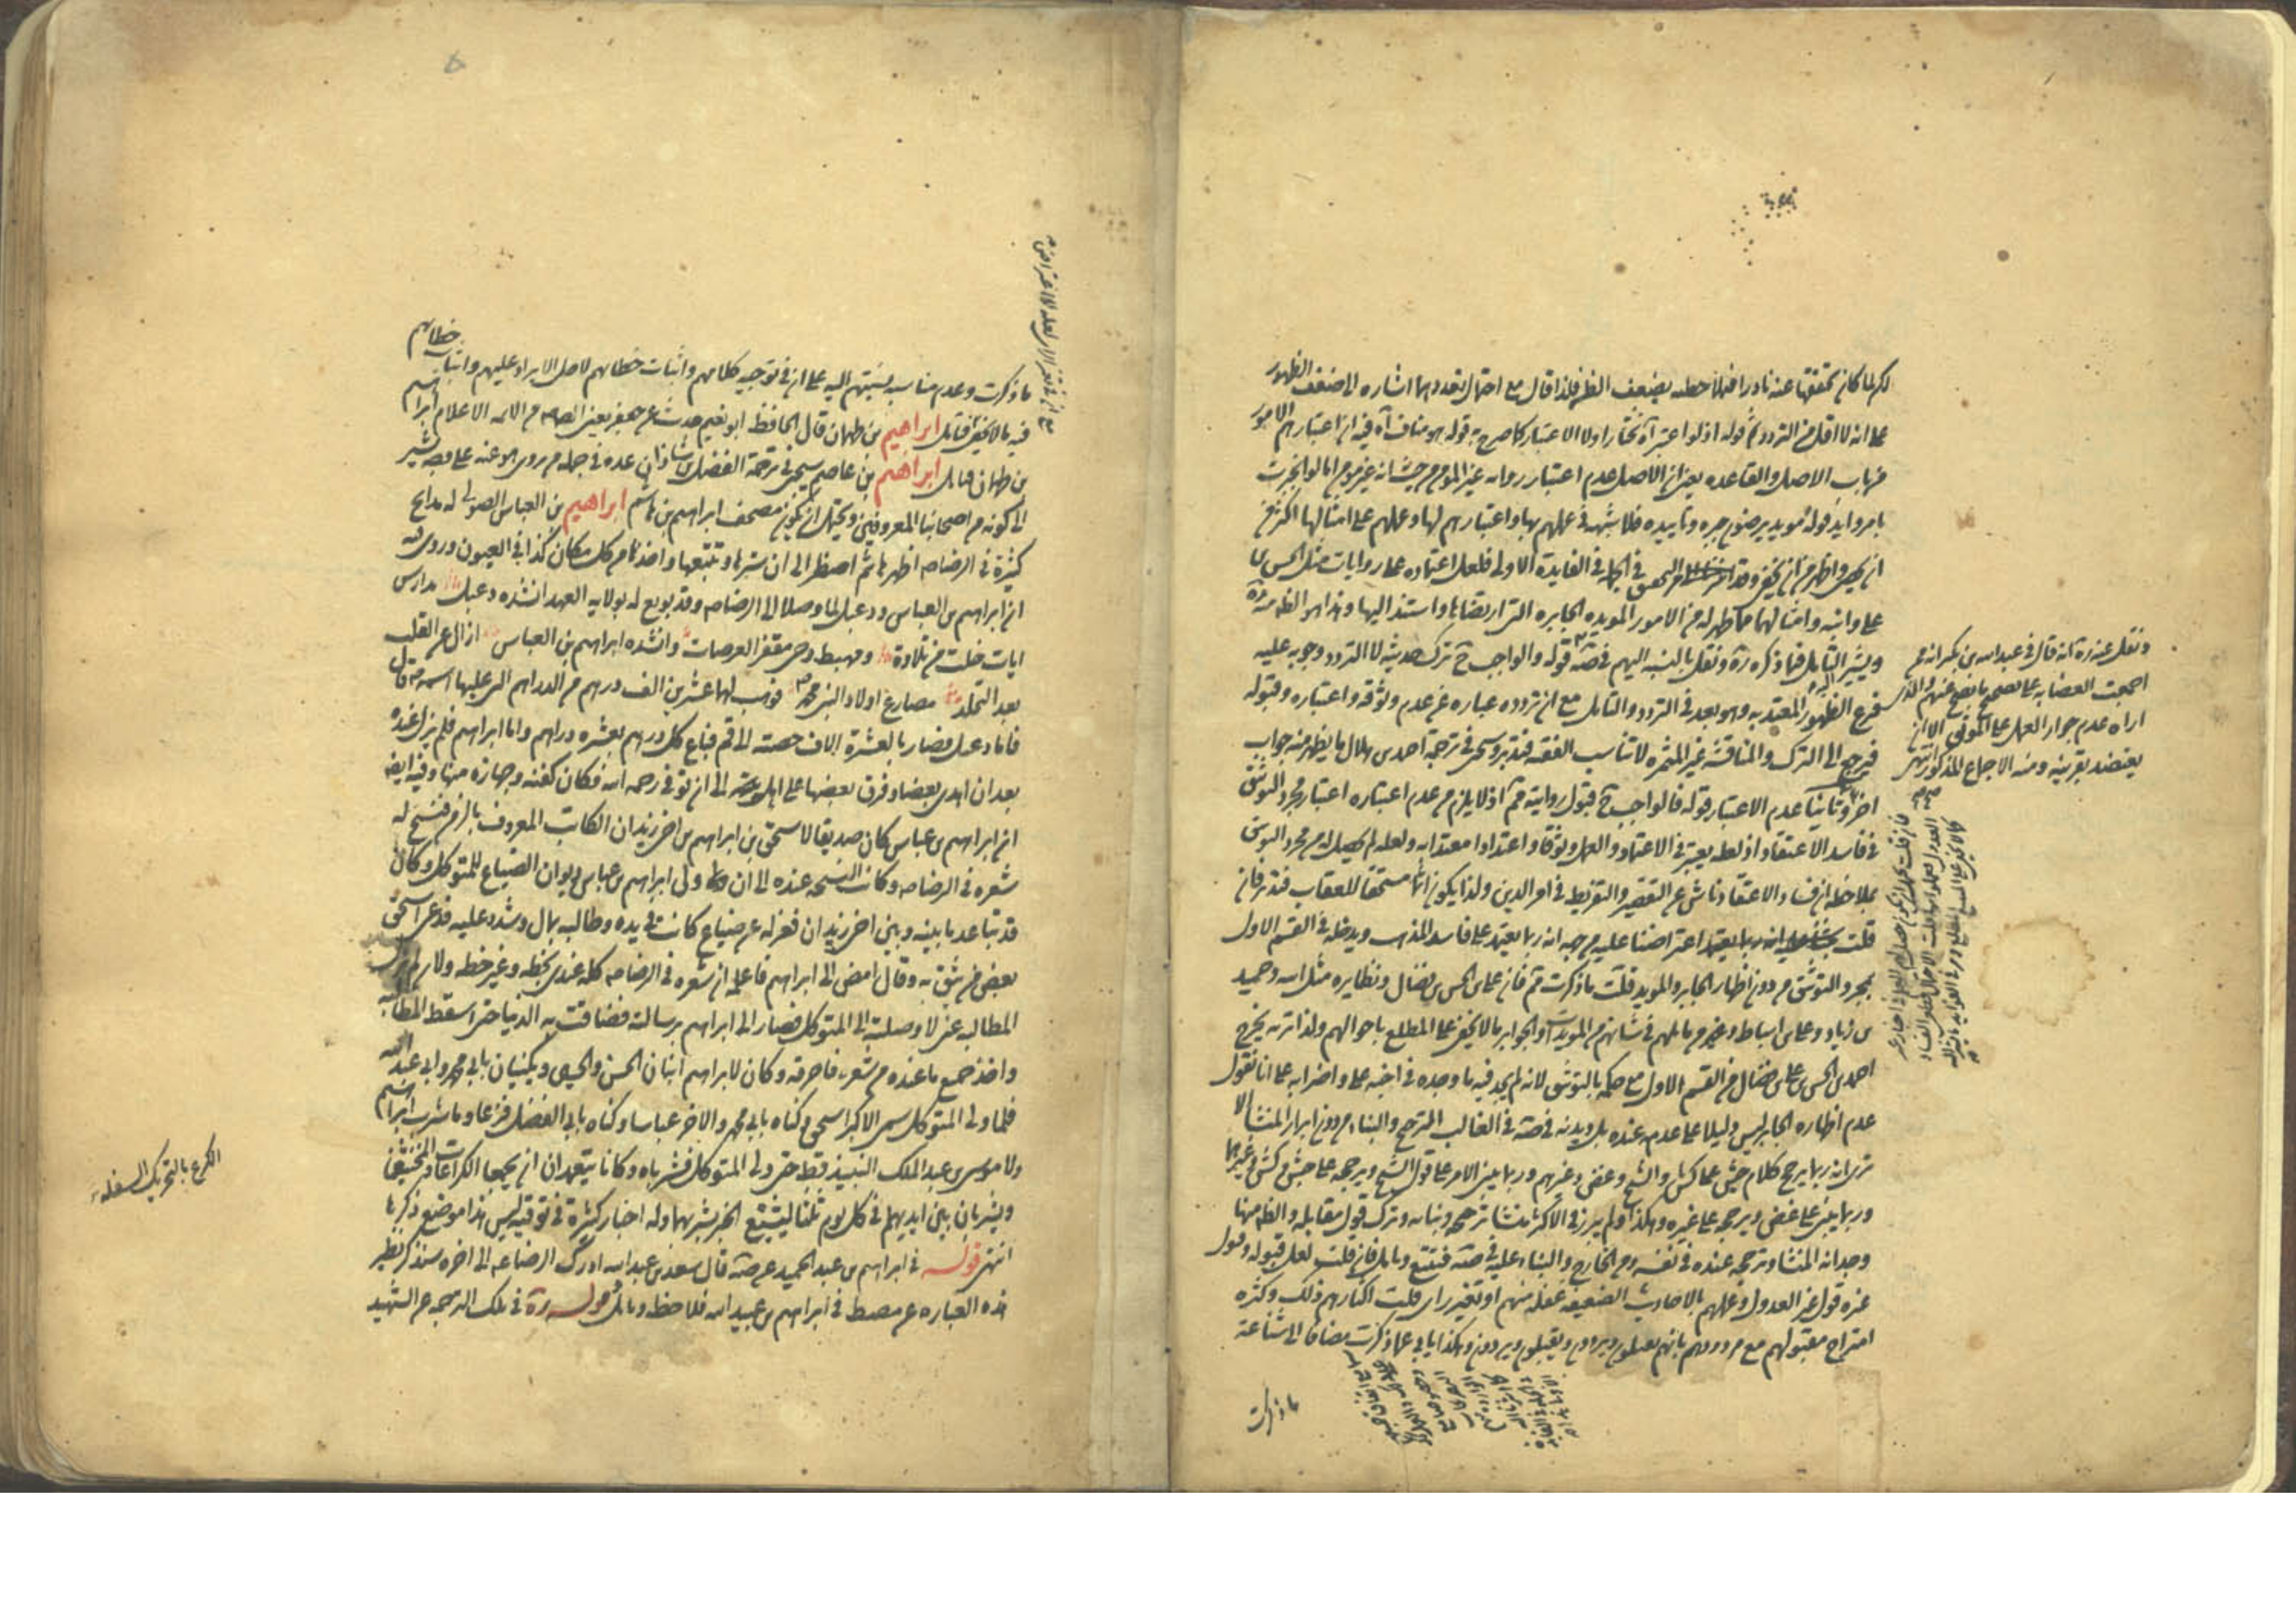 لكن لما كان تحققها عنه نادرا فبملاحظته يضعف الظن فلذا قال مع احتمال تعددهما اشاره الى ضعف الظهور
على انه لا اقل من التردد ثم قوله اذ لو اعتبر آه مختارا ولا الاعتبار كما صرح به قوله هو مناف آه فيه ان اعتبارهم الامور
من باب الاصل والقاعده يعني ان الاصل عدم اعتبار رواية غير المومن من حيث انه غير مومن اما لو انجبرت
بامر وايد قوله مويد يرضون جبره وتاييده فلا شبهة في عملهم بها واعتبارهم لها وعملهم على امثالها اكثر من
ان يحصى واظهر من ان يخفى وقد التحقيق في الجملة في الفايدة الاولى فلعل اعتماده على روايات مثل الحسن بن
علي وابنه وامثالهما مما ظهر له من الامور المويده الجابره التي ارتضاها واستند اليها وهذا هو الظ منه ره
ويشير التامل فيما ذكره ره ونقل بالنسبة اليهم في صه قوله والواجب ح ترك حديثه لا التردد وجوبه عليه
فرع الظهور المعتد به وهو بعد في التردد والتامل مع ان تردده عباره عن عدم وثوقه واعتباره وقبوله
فيرجع الى الترك والمناقشة غير المثمره لا تناسب الفقه فتدبر وسيجئ في ترجمة احمد بن هلال ما يظهر منه جواب
اخر وثانيا عدم الاعتبار قوله فالواجب ح قبول روايته فم اذ لا يلزم من عدم اعتباره اعتبار مجرد التوثيق
في فاسد الاعتقاد اذ لعله يعتبر في الاعتماد والعمل وثوقا واعتدادا معتدا به ولعله لم يحصل له من مجرد التوثيق
بملاحظه ان فساد الاعتقاد ناش عن التقصير والتفريط في امر الدين ولذا يكون اثما مستحقا للعقاب فتدبر فان
قلت انه ربما يعتمد اعترضنا عليه من جهه انه ربما يعتمد على فاسد المذهب ويدخله في القسم الاول
بمجرد التوثيق من دون اظهار الجابر والمويد قلت ما ذكرت فم فان علي بن الحسن بن فضال ونظايره مثل ابيه وحميد
بن زياد وعلي بن اسباط وغيرهم ما لهم في شانهم من المويدات والجوابر ما لا يخفى على المطلع باحوالهم ولذا تريه يخرج
احمد بن الحسن بن علي بن فضال من القسم الاول مع حكمه بالتوثيق لانه لم يجد فيه ما وجده في اخيه علي واضرابه على انا نقول
عدم اظهاره الجابر ليس دليلا على عدمه عنده بل ديدنه في صه في الغالب الترجيح والبناء من دون ابراز المنشا الا
ترى انه ربما يرجح كلام جش على كش والشيخ وغض وغيرهم وربما يبني الامر على قول الشيخ ويرجحه على جش وكش وغيرهما
وربما يبني على غض ويرجحه على غيره وهكذا ولم يبرز في الاكثر منشا ترجيحه وبنائه وترك قول مقابله والظ منها
وجدانه المنشا وترجيحه عنده في نفسه ومن الخارج والبناء عليه في صه فتتبع وتامل فان قلت لعل قبوله وقول
غيره قول غير العدول وعملهم بالاحاديث الضعيفه غفلة منهم او تغير راي قلت اكثارهم ذلك وكثره
امتزاج مقبولهم مع مردودهم بانهم يعملون ويردون ويقبلون ويردون وهكذا يابى عما ذكرت مضافا الى شناعة
ما ذكرت
ونقل عنه ره انه قال في عبد الله بن بكير انه ممن
اجمعت العصابه على تصحيح ما يصح عنهم والذي
اراه عدم جواز العمل على الموثق الا ان
يعتضد بقرينه ومنه الاجماع المذكور انتهى
ما ذكرت وعدم مناسب نسبتهم اليه على ان في توجيه كلامهم واثبات خطائهم لاصل الايراد عليهم واثبات خطائهم
فيه ما لا يخفى فتامل ابراهيم بن طهمان قال الحافظ ابو نعيم حدث عن جعفر يعني الصادق من الائمه الاعلام ابراهيم
بن طهمان فتامل ابراهيم بن عاصم سيجئ في ترجمة الفضل بن شاذان عده في جمله من يروى هو عنه على وجه يشير
الى كونه من اصحابنا المعروفين ويحتمل ان يكون مصحف ابراهيم بن هاشم ابراهيم بن العباس الصولي له مدايح
كثيرة في الرضا ع اظهرها ثم اضطر الى ان سترها وتتبعها واخذها من كل مكان كذا في العيون وروى فيه
ان ابراهيم بن العباس ودعبل لما وصلا الى الرضا ع وقد بويع له بولاية العهد انشده دعبل مدارس
ايات خلت من تلاوة ومهبط وحى مقفر العرصات وانشده ابراهيم بن العباس ازال عزاء القلب
بعد التجلد مصارع اولاد النبي محمد فوهب لهما عشرين الف درهم من الدراهم التي عليها اسمه ع قال
فاما دعبل فصار بالعشرة الاف حصته الى قم فباع كل درهم بعشره دراهم واما ابراهيم فلم يزل عنده
بعد ان اهدى بعضا وفرق بعضها على اهله الى ان توفى رحمه الله فكان كفنه وجهازه منها وفيه ايضا
ان ابراهيم بن عباس كان صديقا لاسحق بن ابراهيم بن اخي زيدان الكاتب المعروف بالزمن فنسخ له
شعره في الرضا ع وكانت النسخه عنده الى ان ولى ابراهيم بن عباس ديوان الضياع للمتوكل وكان
قد تباعد ما بينه وبين اخي زيدان فعزله عن ضياع كانت في يده وطالبه بمال وشدد عليه فدعى اسحق
بعض من يثق به وقال امض الى ابراهيم فاعلمه ان شعره في الرضا ع كله عندى بخطه وغير خطه ولان لم يترك
المطالبه عنى لاوصلته الى المتوكل فصار الى ابراهيم برسالته فضاقت به الدنيا حتى اسقط المطالبه
واخذ جميع ما عنده من شعره فاحرقه وكان لابراهيم ابنان الحسن والحسين ويكنيان بابي محمد وابي عبد الله
فلما ولى المتوكل سمى الاكبر اسحق وكناه بابي محمد والاخر عباسا وكناه بابي الفضل فزعا وما شرب ابراهيم
ولا موسى بن عبد الملك النبيذ قط حتى ولى المتوكل فشرباه وكانا يتعمدان ان يجمعا الكراعات والمخنثين
ويشربان بين ايديهم في كل يوم ثلثا ليشيع الخبر بشربهما وله اخبار كثيرة في توقيه ليس هذا موضع ذكرها
انتهى قوله في ابراهيم بن عبد الحميد عن صه قال سعد بن عبد الله ادرك الرضا ع الى اخره سنذكر نظير
هذه العباره عن مصط في ابراهيم بن عبيد الله فلاحظ وتامل قوله ره في تلك الترجمه عن الشهيد
الكرع بالتحريك السفلة